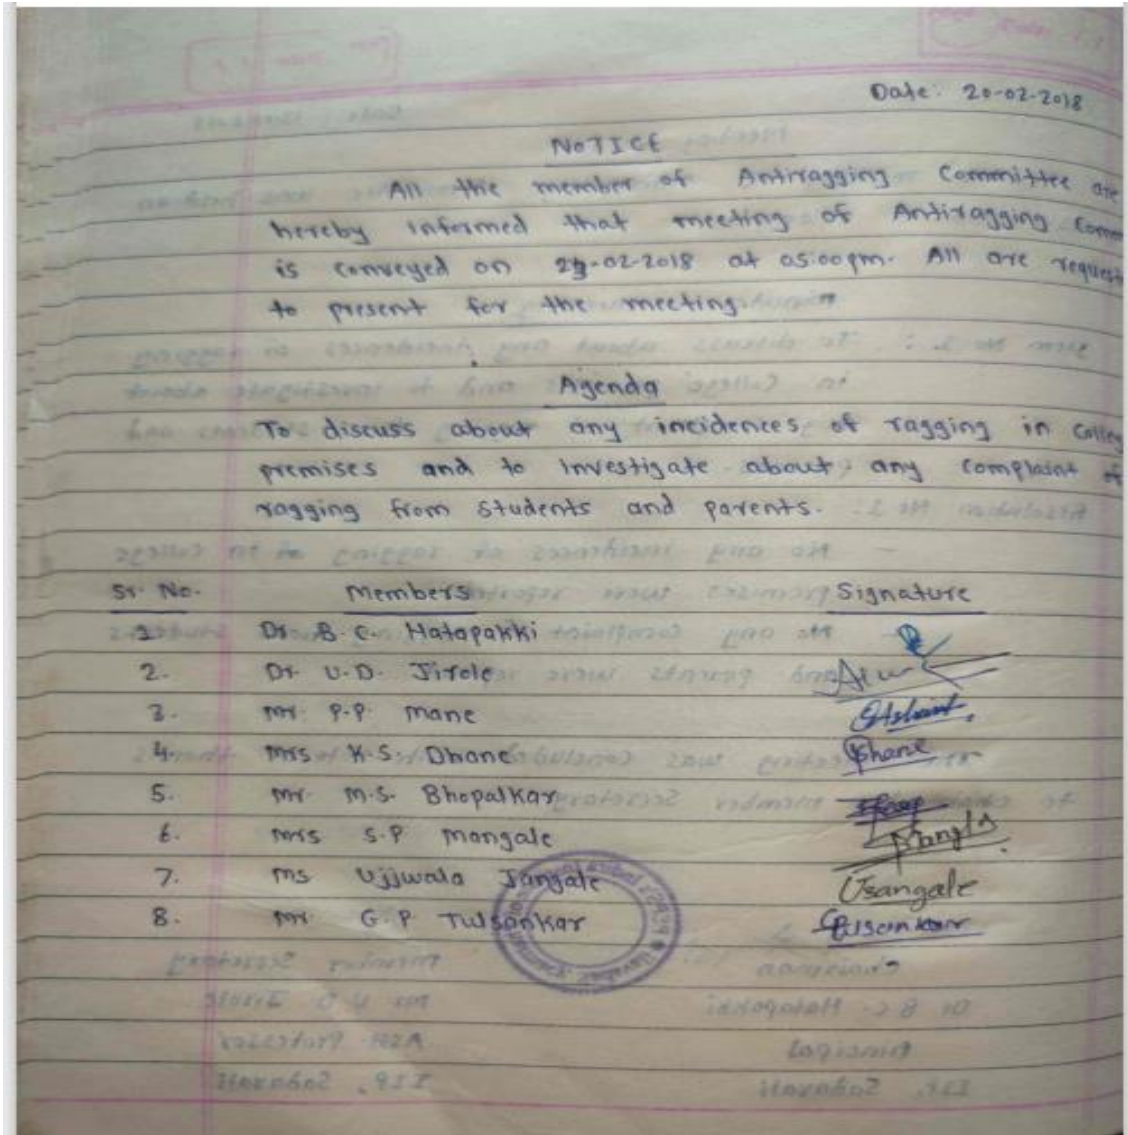 Date: 20-02-2018
NOTICE
All the member of Antiragging Committee are
hereby informed that meeting of Antiragging Comm
is conveyed on -02-2018 at 05:00pm. All are request
to present for the meeting.
Agenda
To discuss about any incidences of ragging in Colleg
premises and to investigate about any complaint of
ragging from students and parents.
Sr. No. Members Signature
1 Dr. B. C. Hatapakki
2. Dr. U.D. Jirole
3. Mr. P.P. Mane
4. Mrs K.S. Dhane Dhane
5. Mr. M.S. Bhopalkar
6. Mrs S.P Mangale Mangle
7. Ms Ujjwala Jangale Usangale
8. Mr. G.P Tulsankar